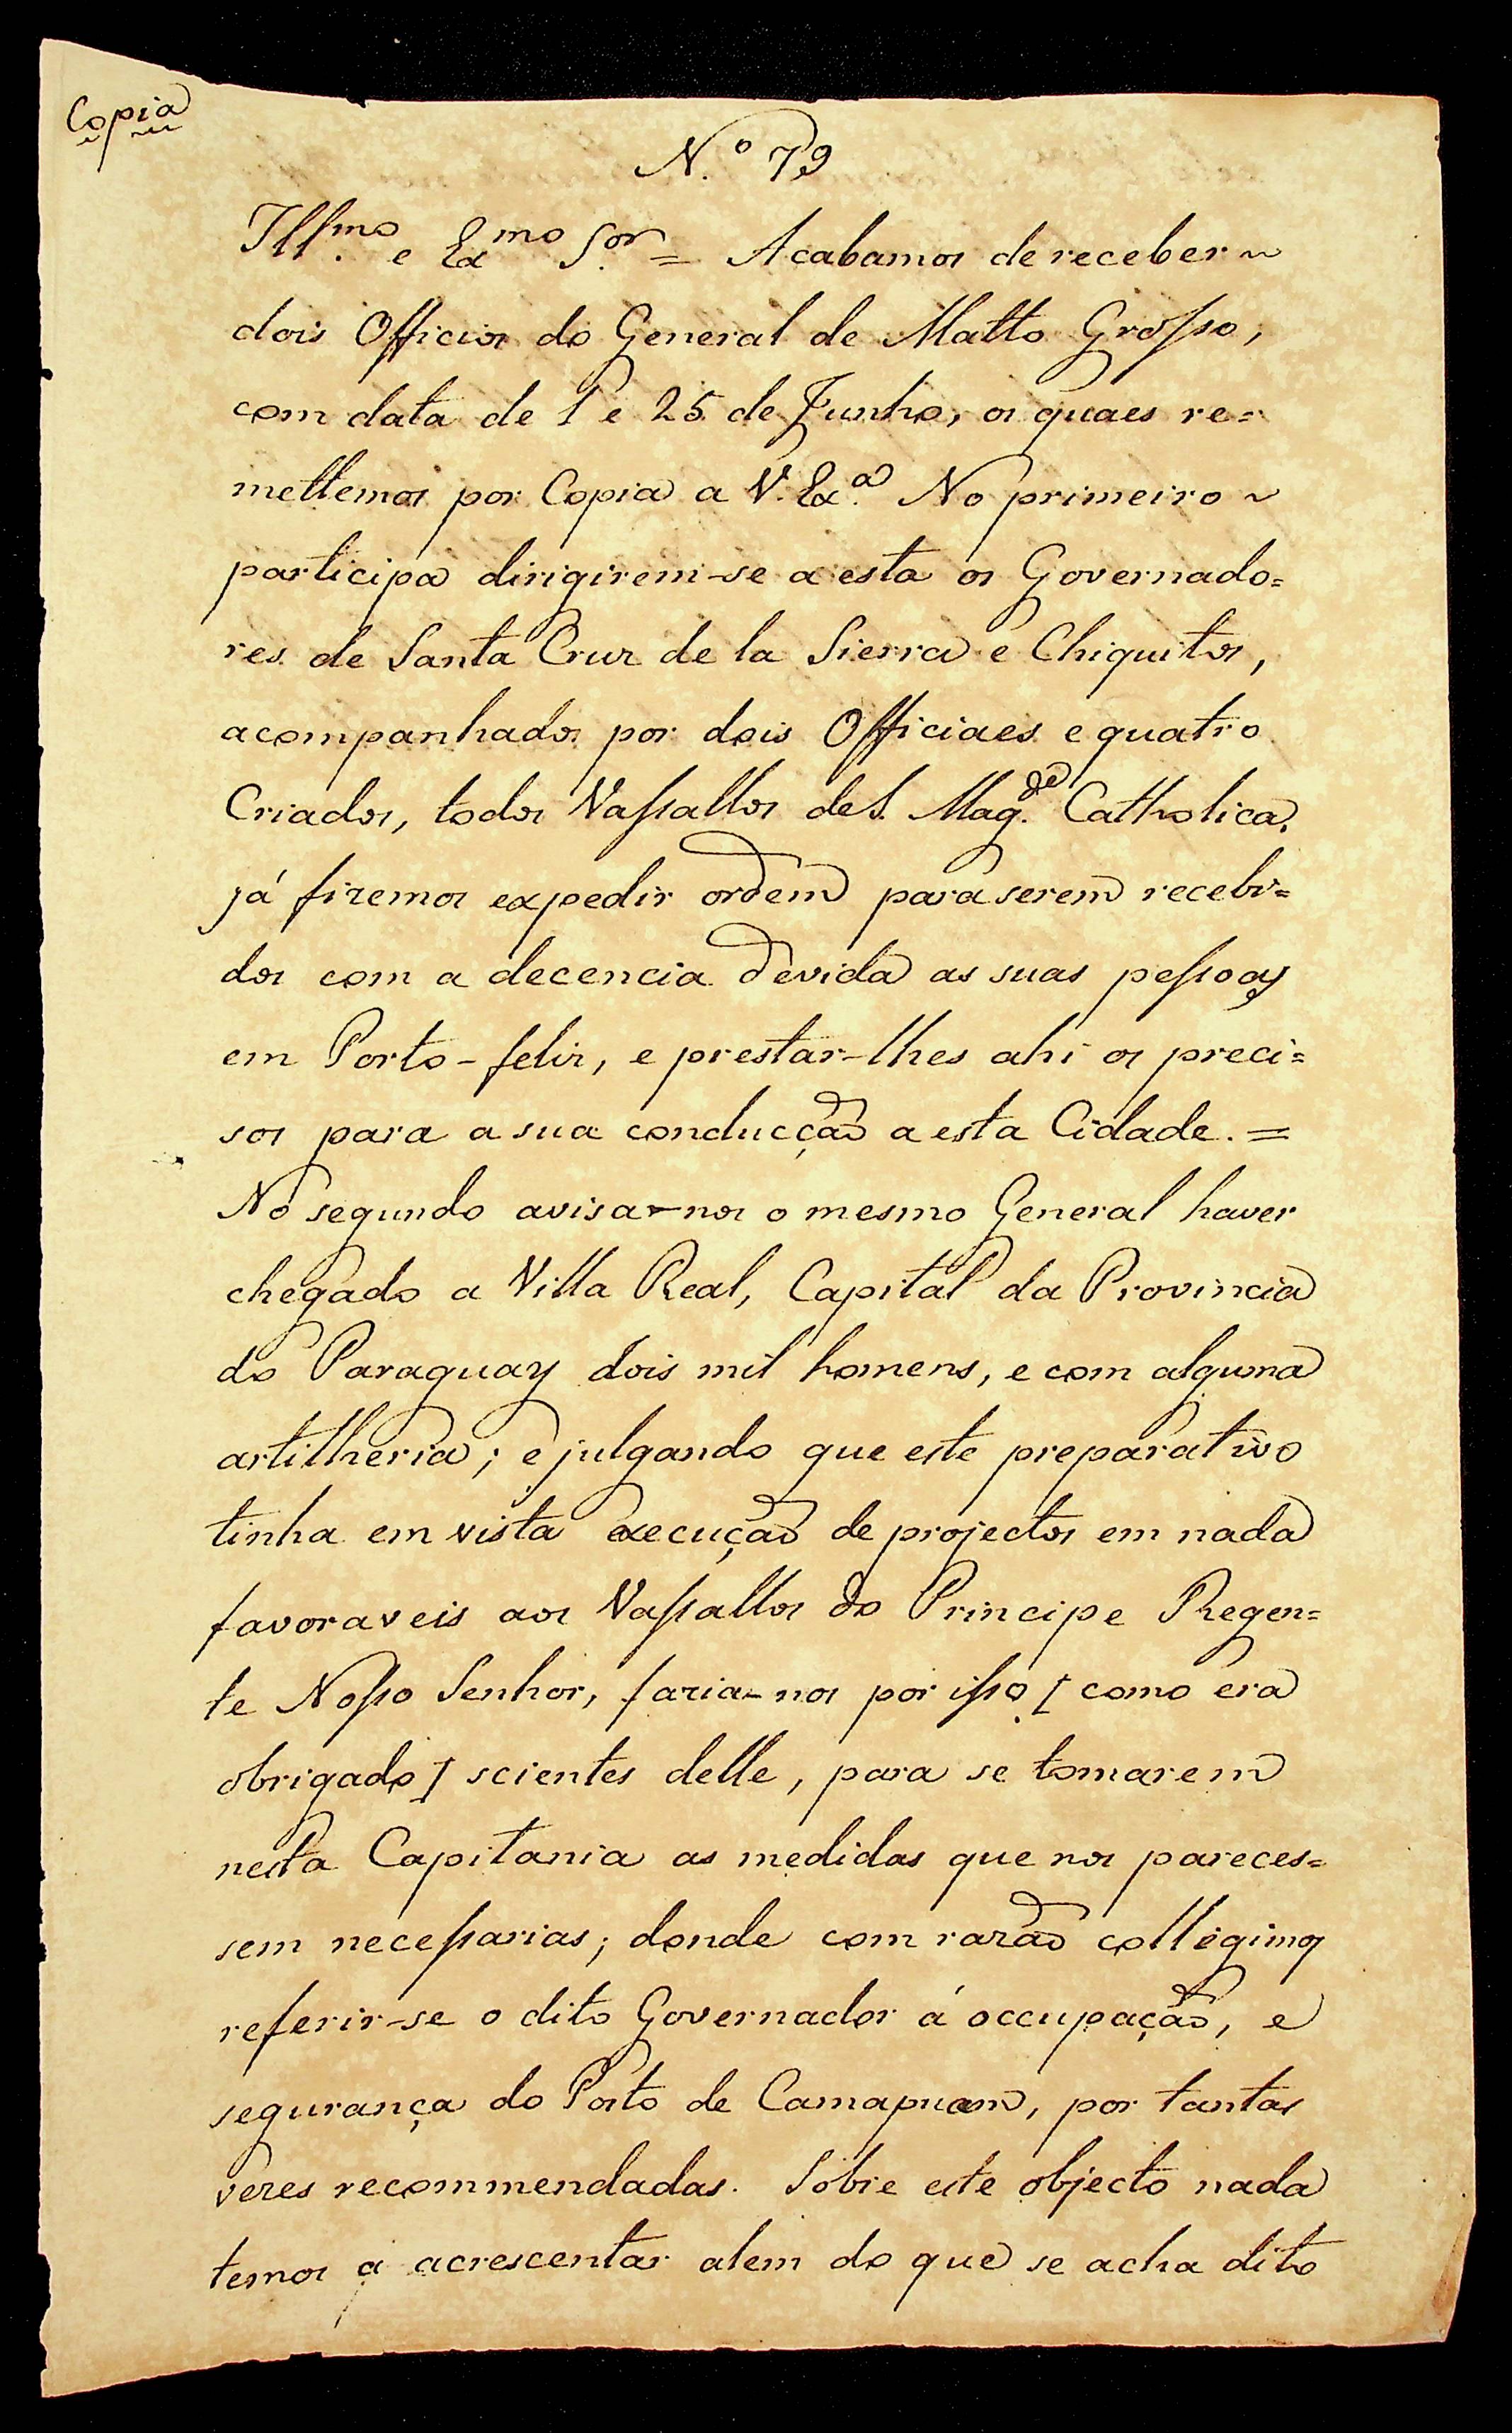 Copia
N.º 79
Ill.mo e Ex.mo S.or = Acabamos de receber ~
dois Officios do General de Matto Grosso,
com data de 1 e 25 de Junho, os quaes re=
mettemos por Copia a V. Ex.a No primeiro ~
participa dirigirem-se a esta os Governado=
res de Santa Cruz de la Sierra e Chiquitos,
acompanhados por dois Officiaes e quatro
Criados, todos Vassallos de S. Mag.de Catholica.
já fizemos expedir ordem para serem recebi=
dos com a decencia devida as suas pessoas
em Porto-feliz, e prestar-lhes ahi os preci=
sos para a sua conducção a esta Cidade. =
No segundo avisa-nos o mesmo General haver
chegado a Villa Real, Capital da Provincia
do Paraguay dois mil homens, e com alguma
artilheria; e julgando que este preparativo
tinha em vista execução de projectos em nada
favoraveis aos Vassallos do Principe Regen=
te Nosso Senhor, fazia-nos por isso [como era
obrigado] scientes delle, para se tomarem
nesta Capitania as medidas que nos pareces=
sem necessarias; donde com razão collegimos
referir-se o dito Governador á occupação, e
segurança do Porto de Camapuam, por tantas
vezes recommendadas. Sobre este objecto nada
temos a acrescentar alem do que se acha dito